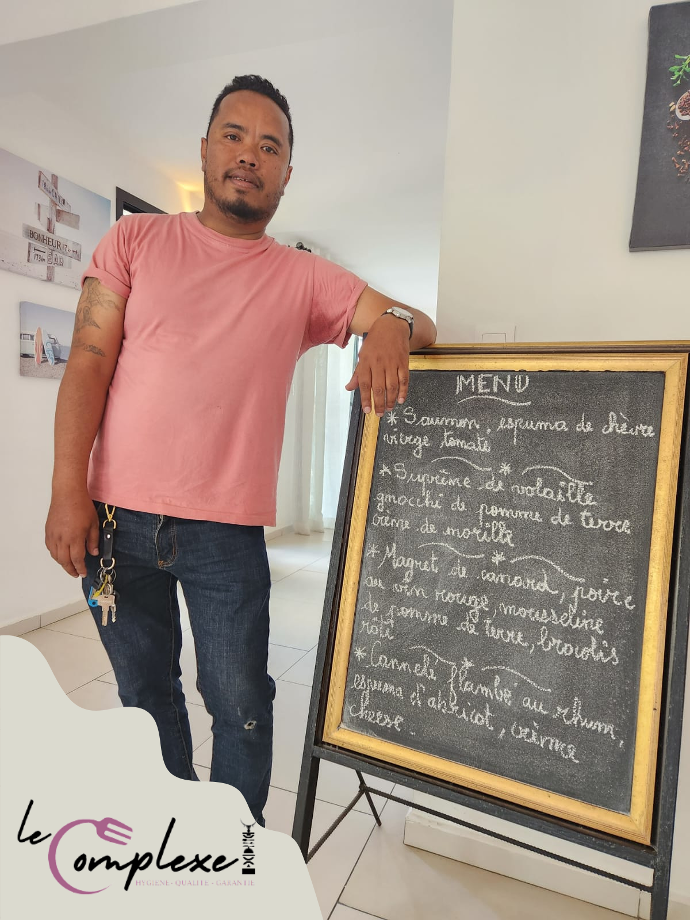 BONHEUR
MENU
* Saumon, espuma de chèvre
vierge tomate
*
* Suprème de volaille
gnocchi de pomme de terre
crème de morille
*
* Magret de canard, poire
au vin rouge, mousseline
de pomme de terre, brocolis
rôti
*
* Cannelé flambé au rhum,
espuma d'abricot, crème
cheese.
le Complexe
HYGIENE - QUALITE - GARANTIE